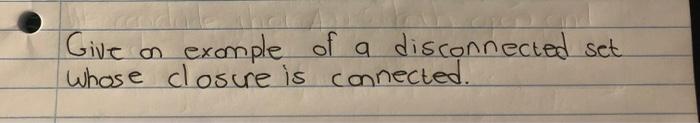 Give an example of a disconnected set
whose closure is connected.